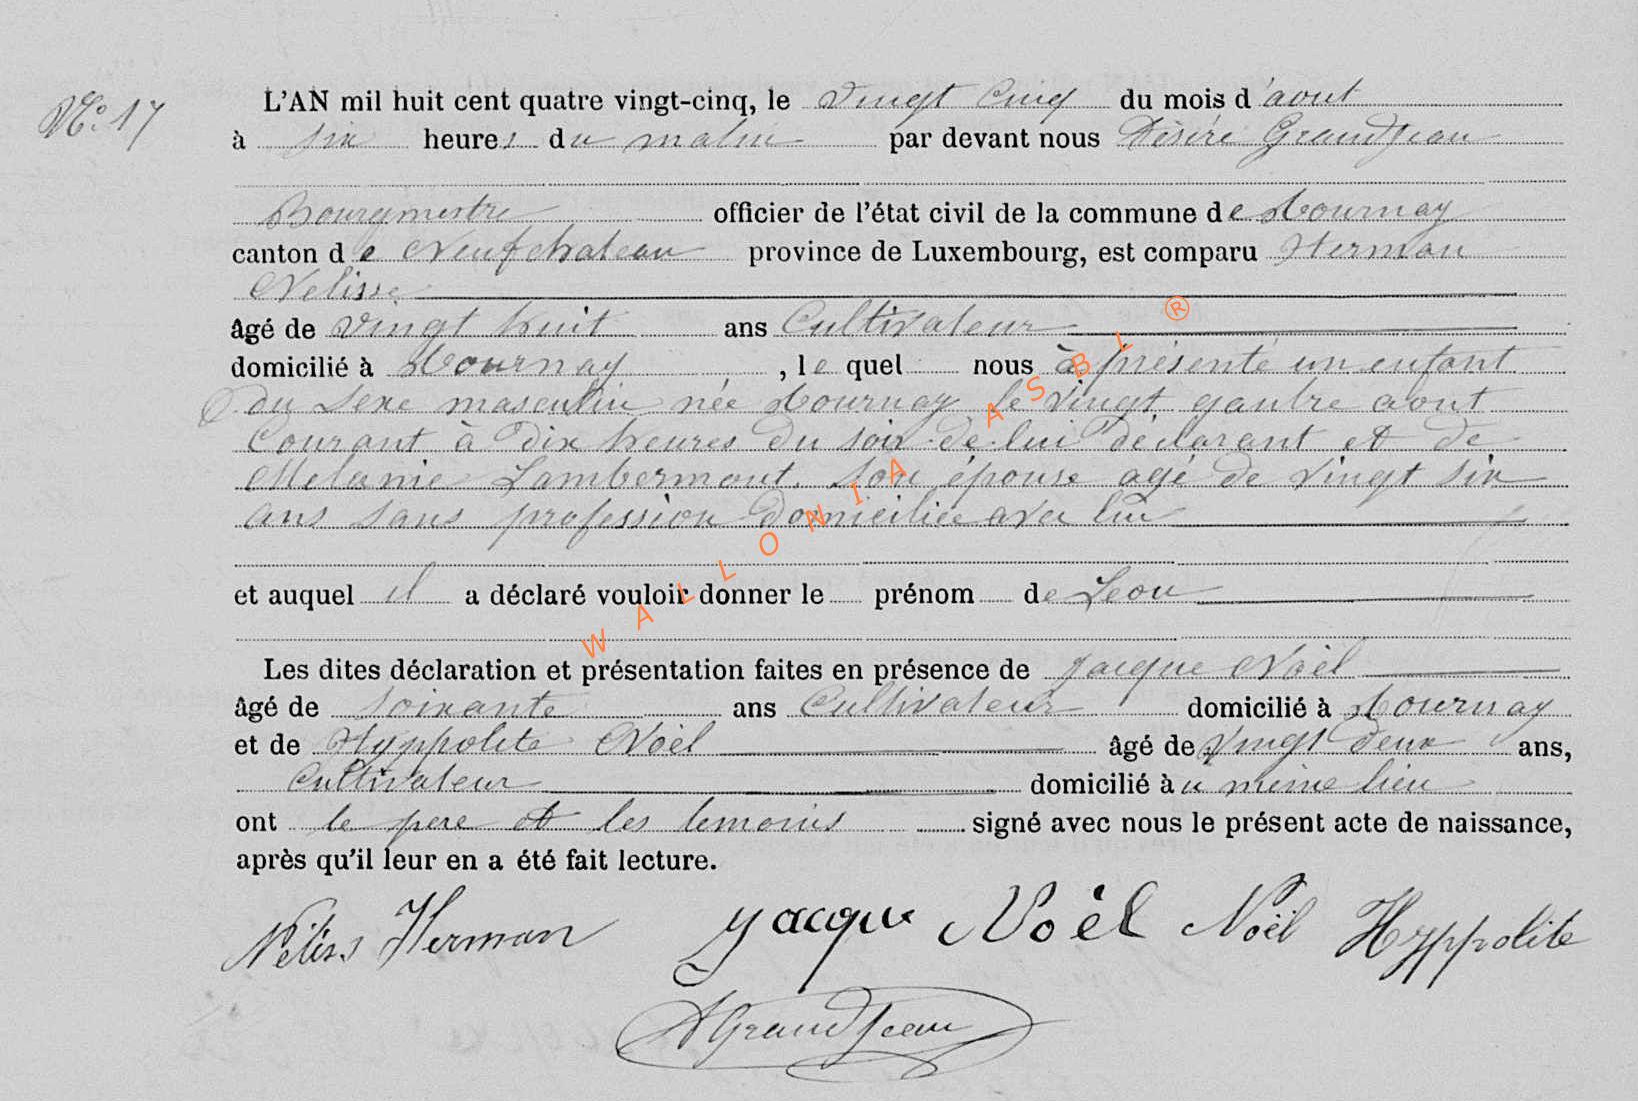 N° 17
L'AN mil huit cent quatre vingt-cinq, le vingt cinq du mois d'aout
à six heures du matin par devant nous Désiré Grandjean
Bourgmestre officier de l'état civil de la commune de Tournay
canton de Neufchateau province de Luxembourg, est comparu Herman
Nelisse
âgé de vingt huit ans Cultivateur
domicilié à Tournay, lequel nous à présenté un enfant
du sexe masculin née Tournay le vingt quatre aout
Courant à Dix heures du soir de lui déclarant et de
Melanie Lambermont. son épouse agé de vingt six
ans sans profession Domiciliée avec lui
et auquel il a déclaré vouloir donner le prénom de Leon
Les dites déclaration et présentation faites en présence de Jacque Noël
âgé de soixante ans Cultivateur domicilié à Tournay
et de Hyppolite Noël âgé de vingt deux ans,
Cultivateur domicilié à u même lieu
ont le pere et les temoins signé avec nous le présent acte de naissance,
après qu'il leur en a été fait lecture.
Néliss Herman Jacque Noël Noël Hyppolite
D Grandjean
WALLONIA ASBL ®